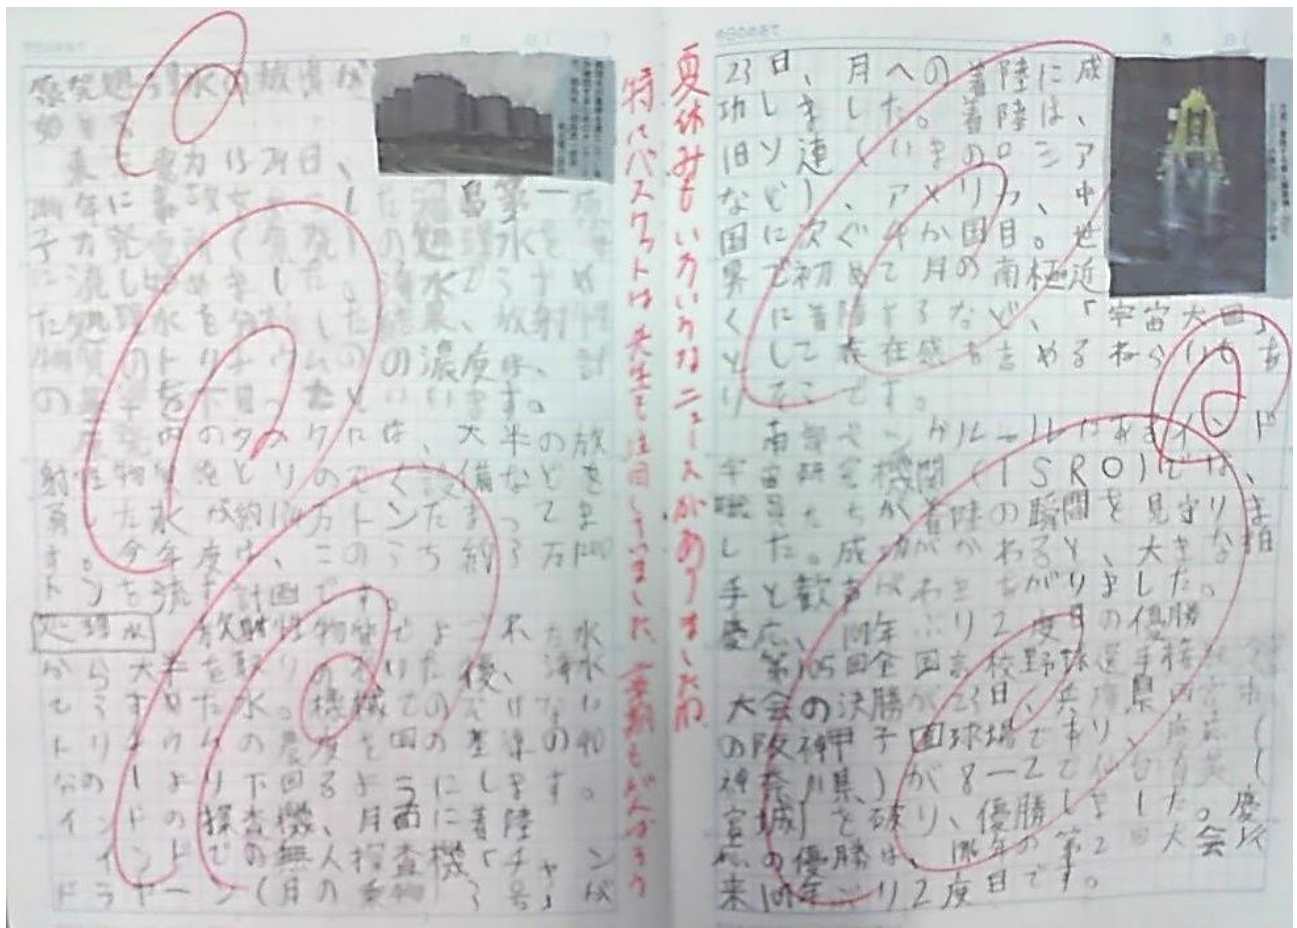 原発処理水の放出が
始まる
東京電力は24日、
年に事故をおこした福島第一原
子力発電所(原発)の処理水を海
に流し始めました。海水でうすめ
た処理水を分析した結果、放射性
物質のトリチウムの濃度は、計
の基準を下回ったといいます。
原発内のタンクには、大半の放
射性物質をとりのぞく設備などを
通した水が約134万トンたまって
す。今年度は、このうち約3万1200
トンを流す計画です。
処理水 放射性物質でよごれた水
から大半を取りのぞいた後、海水
でうすめた水。機械でのぞけない
トリチウムの濃度を国の基準の40
分の1より下回るようにします。
インドの探査機、月面に着陸
インドの無人探査機「チャン
ドラヤーン(月の乗物)3号」が
夏休みもいろいろなニュースがありましたね
特にバスケットは先生も注目していました 二学期もがんばろう
23日、月への着陸に成
功しました。着陸は、
旧ソ連(いまのロシア
など)、アメリカ、中
国に次ぐ4か国目。世
界で初めて月の南極近
くに着陸するなど、「宇宙大国」
として存在感を高めるねらいもあ
りそうです。
南部ベンガルールにあるインド
宇宙研究機関(ISRO)では、
職員たちが着陸の瞬間を見守りま
した。成功がわかると、大きな拍
手と歓声がわき上がりました。
慶応、107年ぶり2度目の優勝
第105回全国高校野球選手権
大会の決勝が23日、兵庫県西宮市
の阪神甲子園球場であり、慶応(
神奈川県)が8―2で仙台育英(
宮城)を破り、優勝しました。慶
応の優勝は、1916年の第2回大会以
来107年ぶり2度目です。